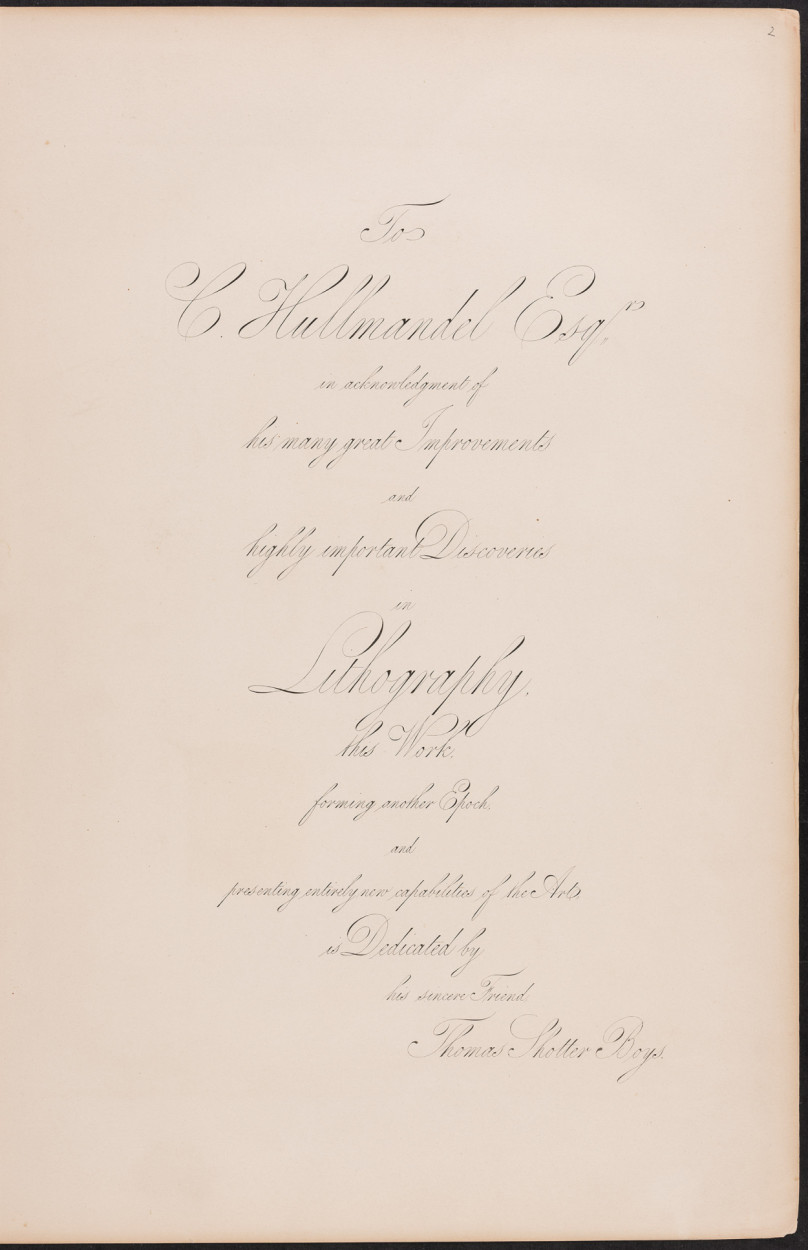 2
To
C. Hullmandel Esqr.
in acknowledgment of
his many great Improvements
and
highly important Discoveries
in
Lithography.
this Work.
forming another Epoch.
and
presenting entirely new capabilities of the Art,
is Dedicated by
his sincere Friend
Thomas Shotter Boys.